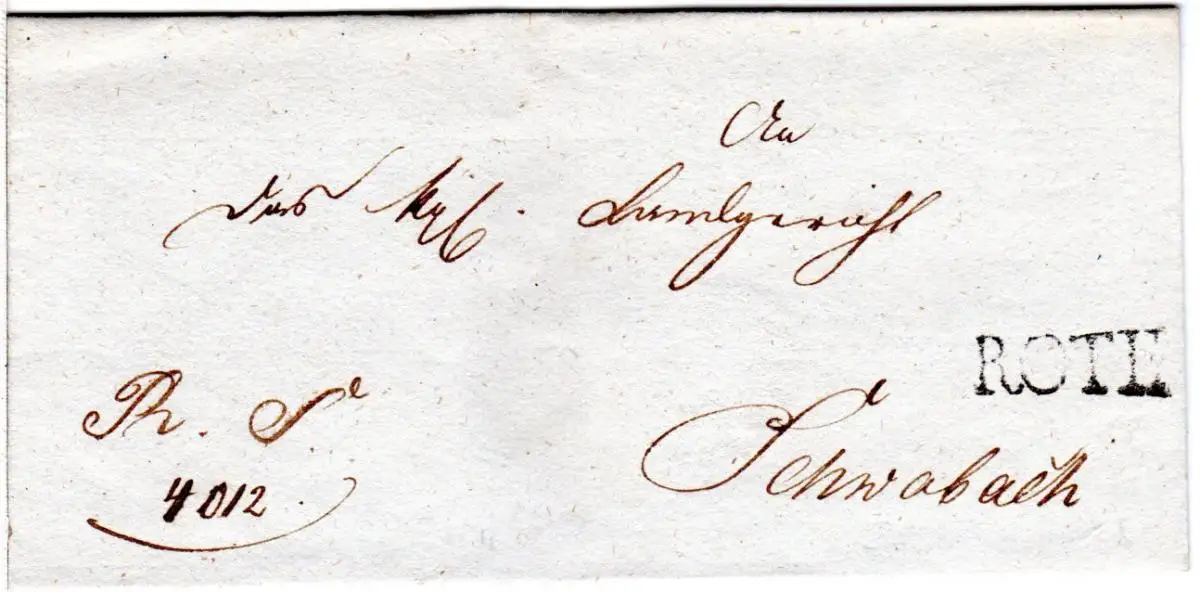 An
das Kgl. Landgericht
ROTH
R. S.
Schwabach
4012.